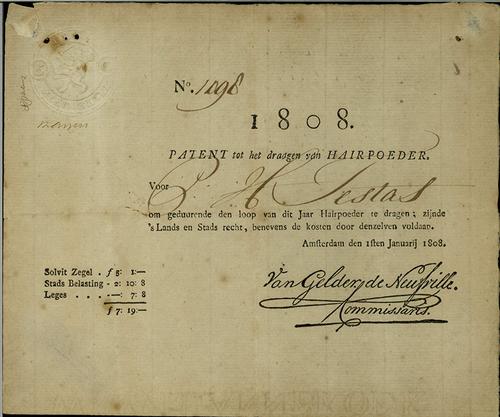 No. 1098
1808.
PATENT tot het draagen van HAIRPOEDER.
Voor P. H. Testas
om geduurende den loop van dit Jaar Hairpoeder te dragen; zijnde
's Lands en Stads recht, benevens de kosten door denzelven voldaan.
Amsterdam den 1sten Januarij 1808.
Solvit Zegel . ƒ 5: 1:—
Stads Belasting - 2: 10: 8
Leges . . . . —: 7: 8
ƒ 7: 19:—
Van Gelder, de Neufville.
Kommissaris.